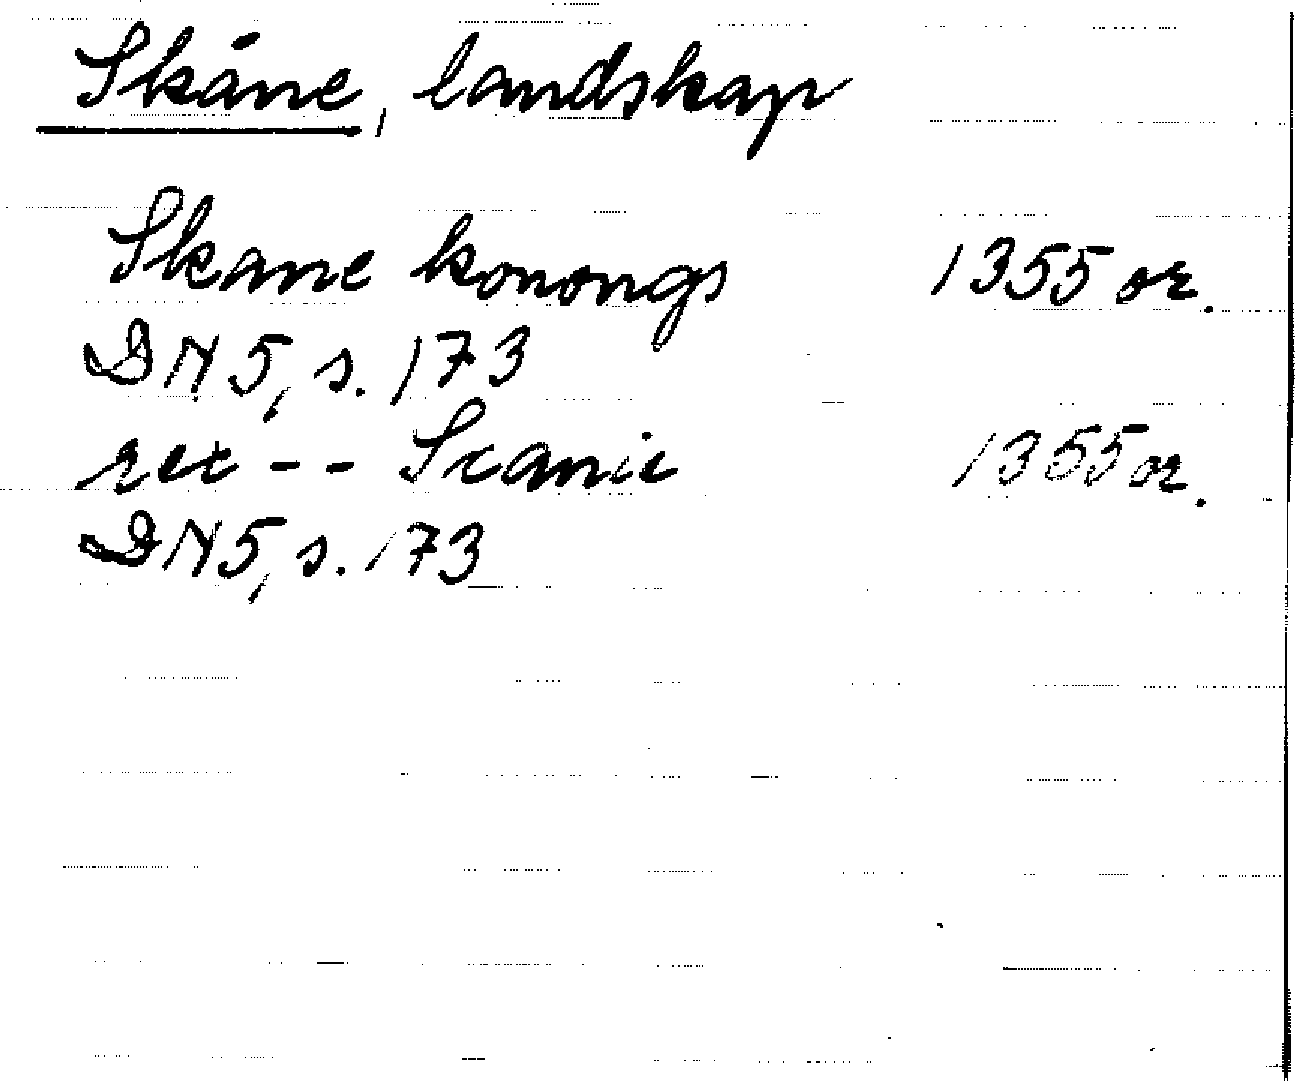 Skåne, landskap
Skane konongs 1355 or.
DN 5, s. 173
rex - - Scanie 1355 or.
DN 5, s. 173